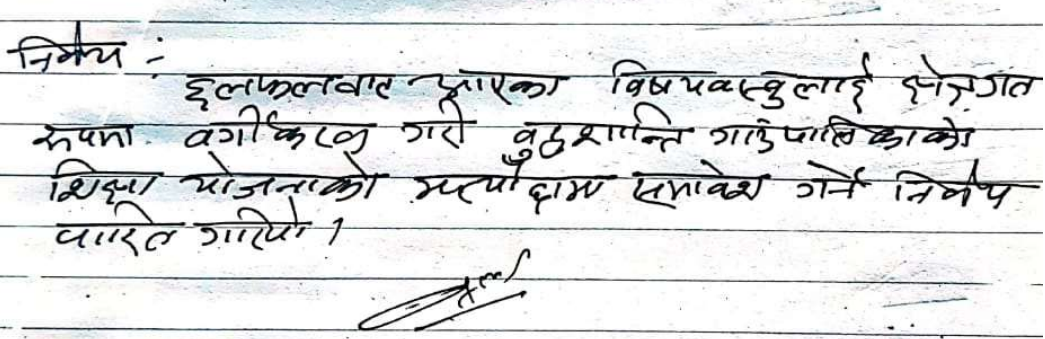 निर्णय :-
छलफलबाट आएका विषयवस्तुलाई क्षेत्रगत
रुपमा वर्गीकरण गरी बुद्धशान्ति गाउँपालिकाको
शिक्षा योजनाको मस्यौदामा समावेश गर्ने निर्णय
पारित गरियो ।